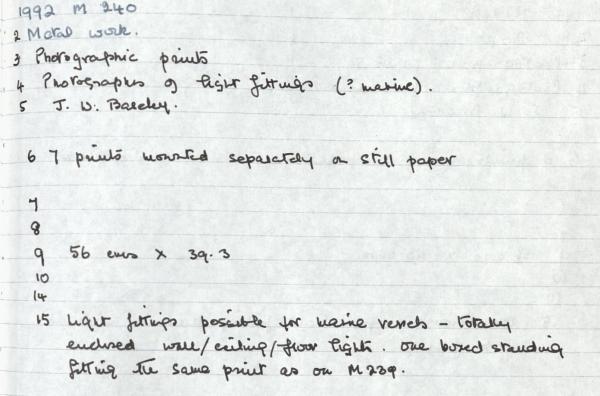 1992 M 240
2 Metal work.
3 Photographic prints
4 Photographs of light fittings (? marine).
5 J. W. Baseley.
6 7 prints mounted separately on still paper
7
8
9 56 cms x 39.3
10
14
15 Light fittings possible for marine vessels - totally
enclosed wall/ceiling/floor lights. One boxed standing
fitting the same print as on M239.